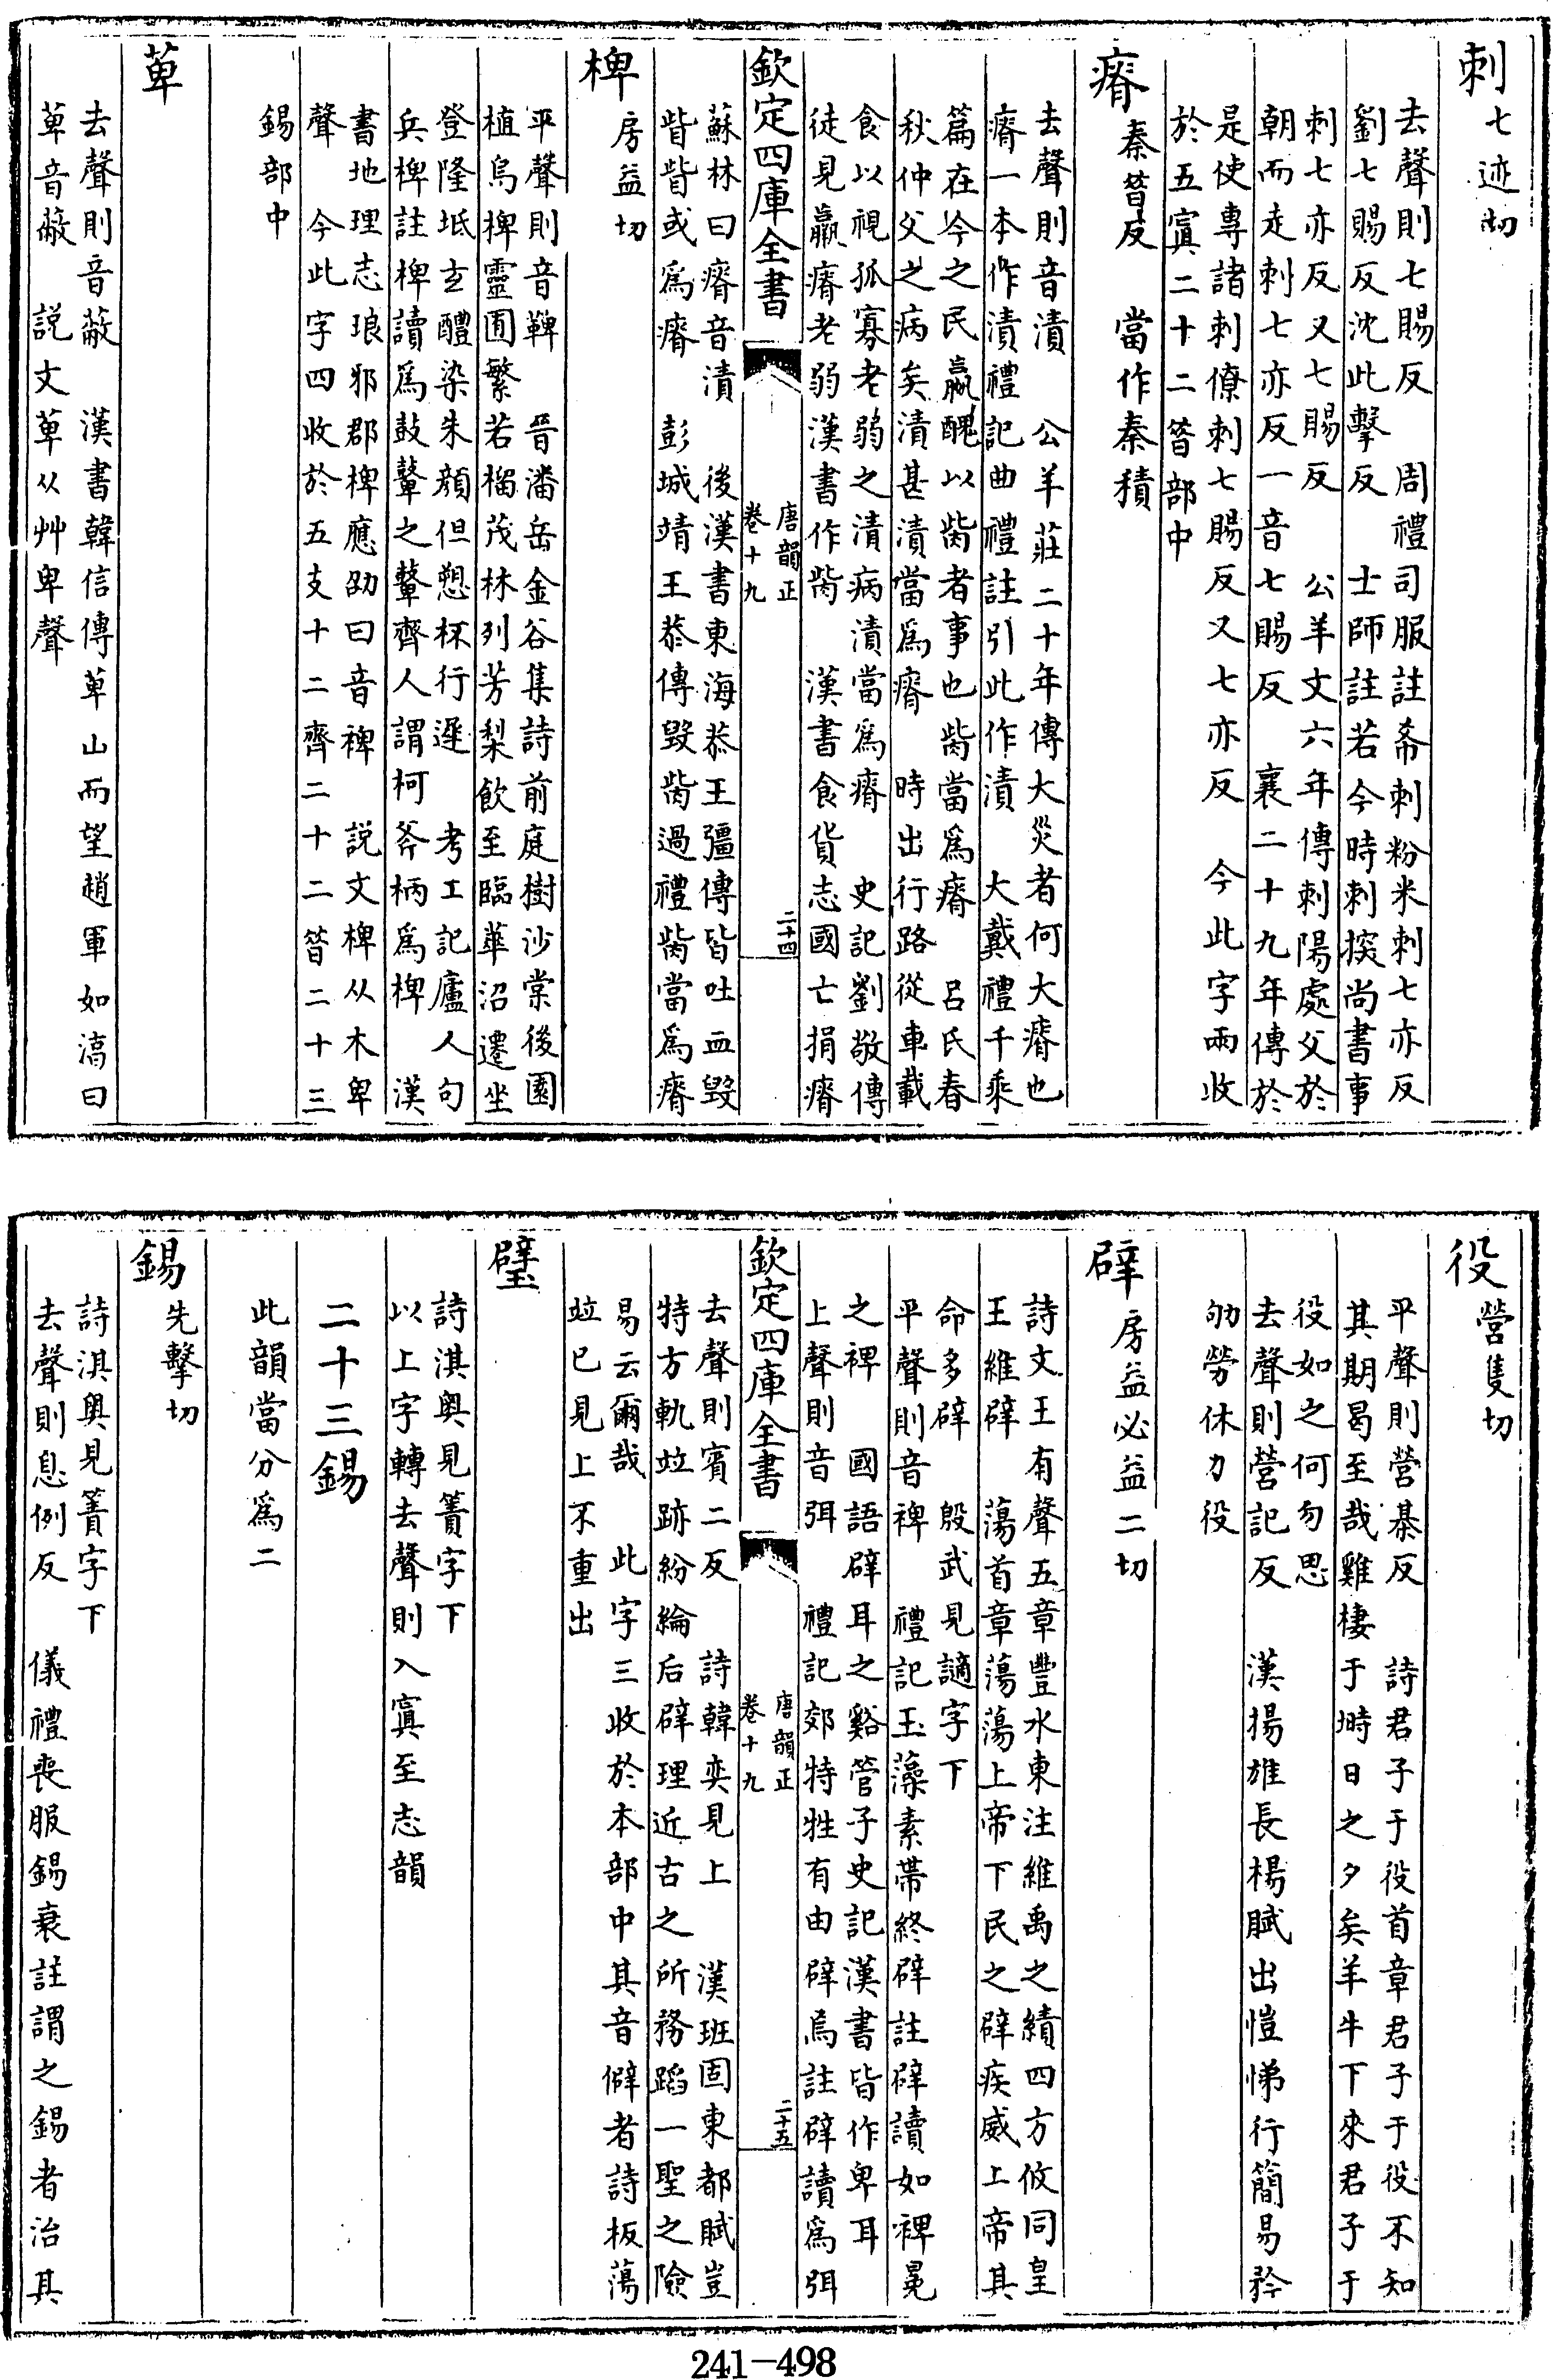 刺七迹切
去聲則七賜反　周禮司服註希刺粉米刺七亦反
劉七賜反沈此擊反　士師註若今時刺探尚書事
刺七亦反又七賜反　公羊文六年傳刺陽處父於
朝而走刺七亦反一音七賜反　襄二十九年傳於
是使專諸刺僚刺七賜反又七亦反　今此字兩收
於五寘二十二昔部中
瘠秦昔反　當作秦積
去聲則音漬　公羊莊二十年傳大災者何大瘠也
瘠一本作漬禮記曲禮註引此作漬　大戴禮千乘
篇在今之民羸醜以胔者事也胔當爲瘠　呂氏春
秋仲父之病矣漬甚漬當爲瘠　時出行路從車載
食以視孤寡老弱之漬病漬當爲瘠　史記劉敬傳
徒見羸瘠老弱漢書作胔　漢書食貨志國亡捐瘠
欽定四庫全書
唐韻正
卷十九
二十四
蘇林曰瘠音漬　後漢書東海恭王彊傳皆吐血毀
眥眥或爲瘠　彭城靖王恭傳毀胔過禮胔當爲瘠
椑房益切
平聲則音鞞　晉潘岳金谷集詩前庭樹沙棠後園
植烏椑靈囿繁若榴茂林列芳梨飲至臨華沼遷坐
登隆坻玄醴染朱顏但愬杯行遲　考工記廬人句
兵椑註椑讀爲鼓鼙之鼙齊人謂柯斧柄爲椑　漢
書地理志琅邪郡椑應劭曰音裨　説文椑从木卑
聲　今此字四收於五支十二齊二十二昔二十三
錫部中
萆
去聲則音蔽　漢書韓信傳萆山而望趙軍如淳曰
萆音蔽　説文萆从艸卑聲
役營隻切
平聲則營棊反　詩君子于役首章君子于役不知
其期曷至哉雞棲于塒日之夕矣羊牛下來君子于
役如之何勿思
去聲則營記反　漢揚雄長楊賦出愷悌行簡易矜
劬勞休力役
辟房益必益二切
詩文王有聲五章豐水東注維禹之績四方攸同皇
王維辟　蕩首章蕩蕩上帝下民之辟疾威上帝其
命多辟　殷武見謫字下
平聲則音裨　禮記玉藻素帶終辟註辟讀如裨冕
之裨　國語辟耳之谿管子史記漢書皆作卑耳
上聲則音弭　禮記郊特牲有由辟焉註辟讀爲弭
欽定四庫全書
唐韻正
卷十九
二十五
去聲則賓二反　詩韓奕見上　漢班固東都賦豈
特方軌竝跡紛綸后辟理近古之所務蹈一聖之險
易云爾哉　此字三收於本部中其音僻者詩板蕩
竝已見上不重出
璧
詩淇奧見簀字下
以上字轉去聲則入寘至志韻
二十三錫
此韻當分爲二
錫先擊切
詩淇奧見簀字下
去聲則息例反　儀禮喪服錫衰註謂之錫者治其
241-498